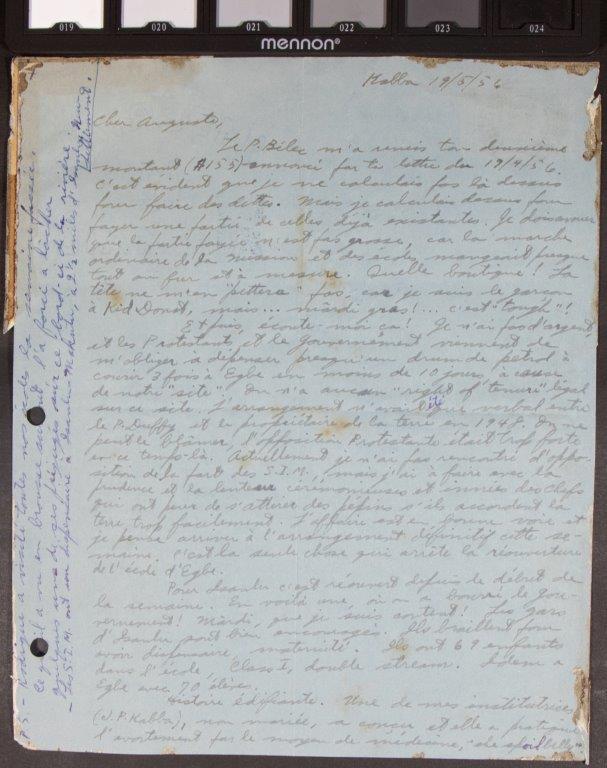 019 020 021 022 023 024
mennon®
Kabba 19/5/56
Cher Auguste,
Le P. Bélec m'a remis ton deuxième
montant ($155) annoncé par ta lettre du 19/4/56.
C'est évident que je ne calculais pas là dessus
pour faire des dettes. Mais je calculais dessus pour
payer une partie de celles déjà existantes. Je
que la partie payée n'est pas grosse, car la marche
ordinaire de la mission et des écoles mangeait presque
tout au fur et à mesure. Quelle boutique! La
tête ne m'en "pettera" pas, car je suis le garçon
à Kid Donat, mais... mardi gras!... c'est "tough"!
Et puis, écoute-moi ça! Je n'ai pas d'argent
et les Protestants et le Gouvernement viennent de
m'obliger à dépenser presqu'un drum de petrol à
courir 3 fois à Egbe en moins de 10 jours à cause
de notre "site". On n'a aucun "right of tenure" légal
sur ce site. L'arrangement n'avait été que verbal entre
le P. Duffy et le propriétaire de la terre en 1948. On ne
peut le blâmer, l'opposition Protestante était trop forte
en ce temps-là. Actuellement je n'ai pas rencontré d'oppo-
sition de la part des S.I.M., mais j'ai à faire avec la
prudence et la lenteur cérémonieuses et innées des Chefs
qui ont peur de s'attirer des pépins s'ils accordent la
terre trop facilement. L'affaire est en bonne voie et
je pense arriver à l'arrangement définitif cette se-
maine. C'est la seule chose qui arrête la réouverture
de l'école d'Egbe.
Pour Isanlu c'est réouvert depuis le début de
la semaine. En voilà une, où on a bourré le Gou-
vernement! Mardi, que je suis content! Les gars
d'Isanlu sont bien encouragés. Ils braillent pour
avoir dispensaire, maternité. Ils ont 69 enfants
dans l'école, Class I, double stream. Idem à
Egbe avec 70 élèves.
Histoire édifiante. Une de mes institutrices
(J.P. Kabba), non mariée, a conçu et elle a pratiqué
l'avortement par le moyen de médecine, "she spoil belly"
P.S. - Rodrigue a visité toutes nos écoles la semaine passée.
Ce qu'il a vu en brousse surtout l'a forcé à lâcher
quelques uns de ses préjugés sur ce bord-ci de la rivière.
- Les S.I.M. ont un dispensaire à Isanlu Makutu, à 2½ milles d'Isanlu
settlement.